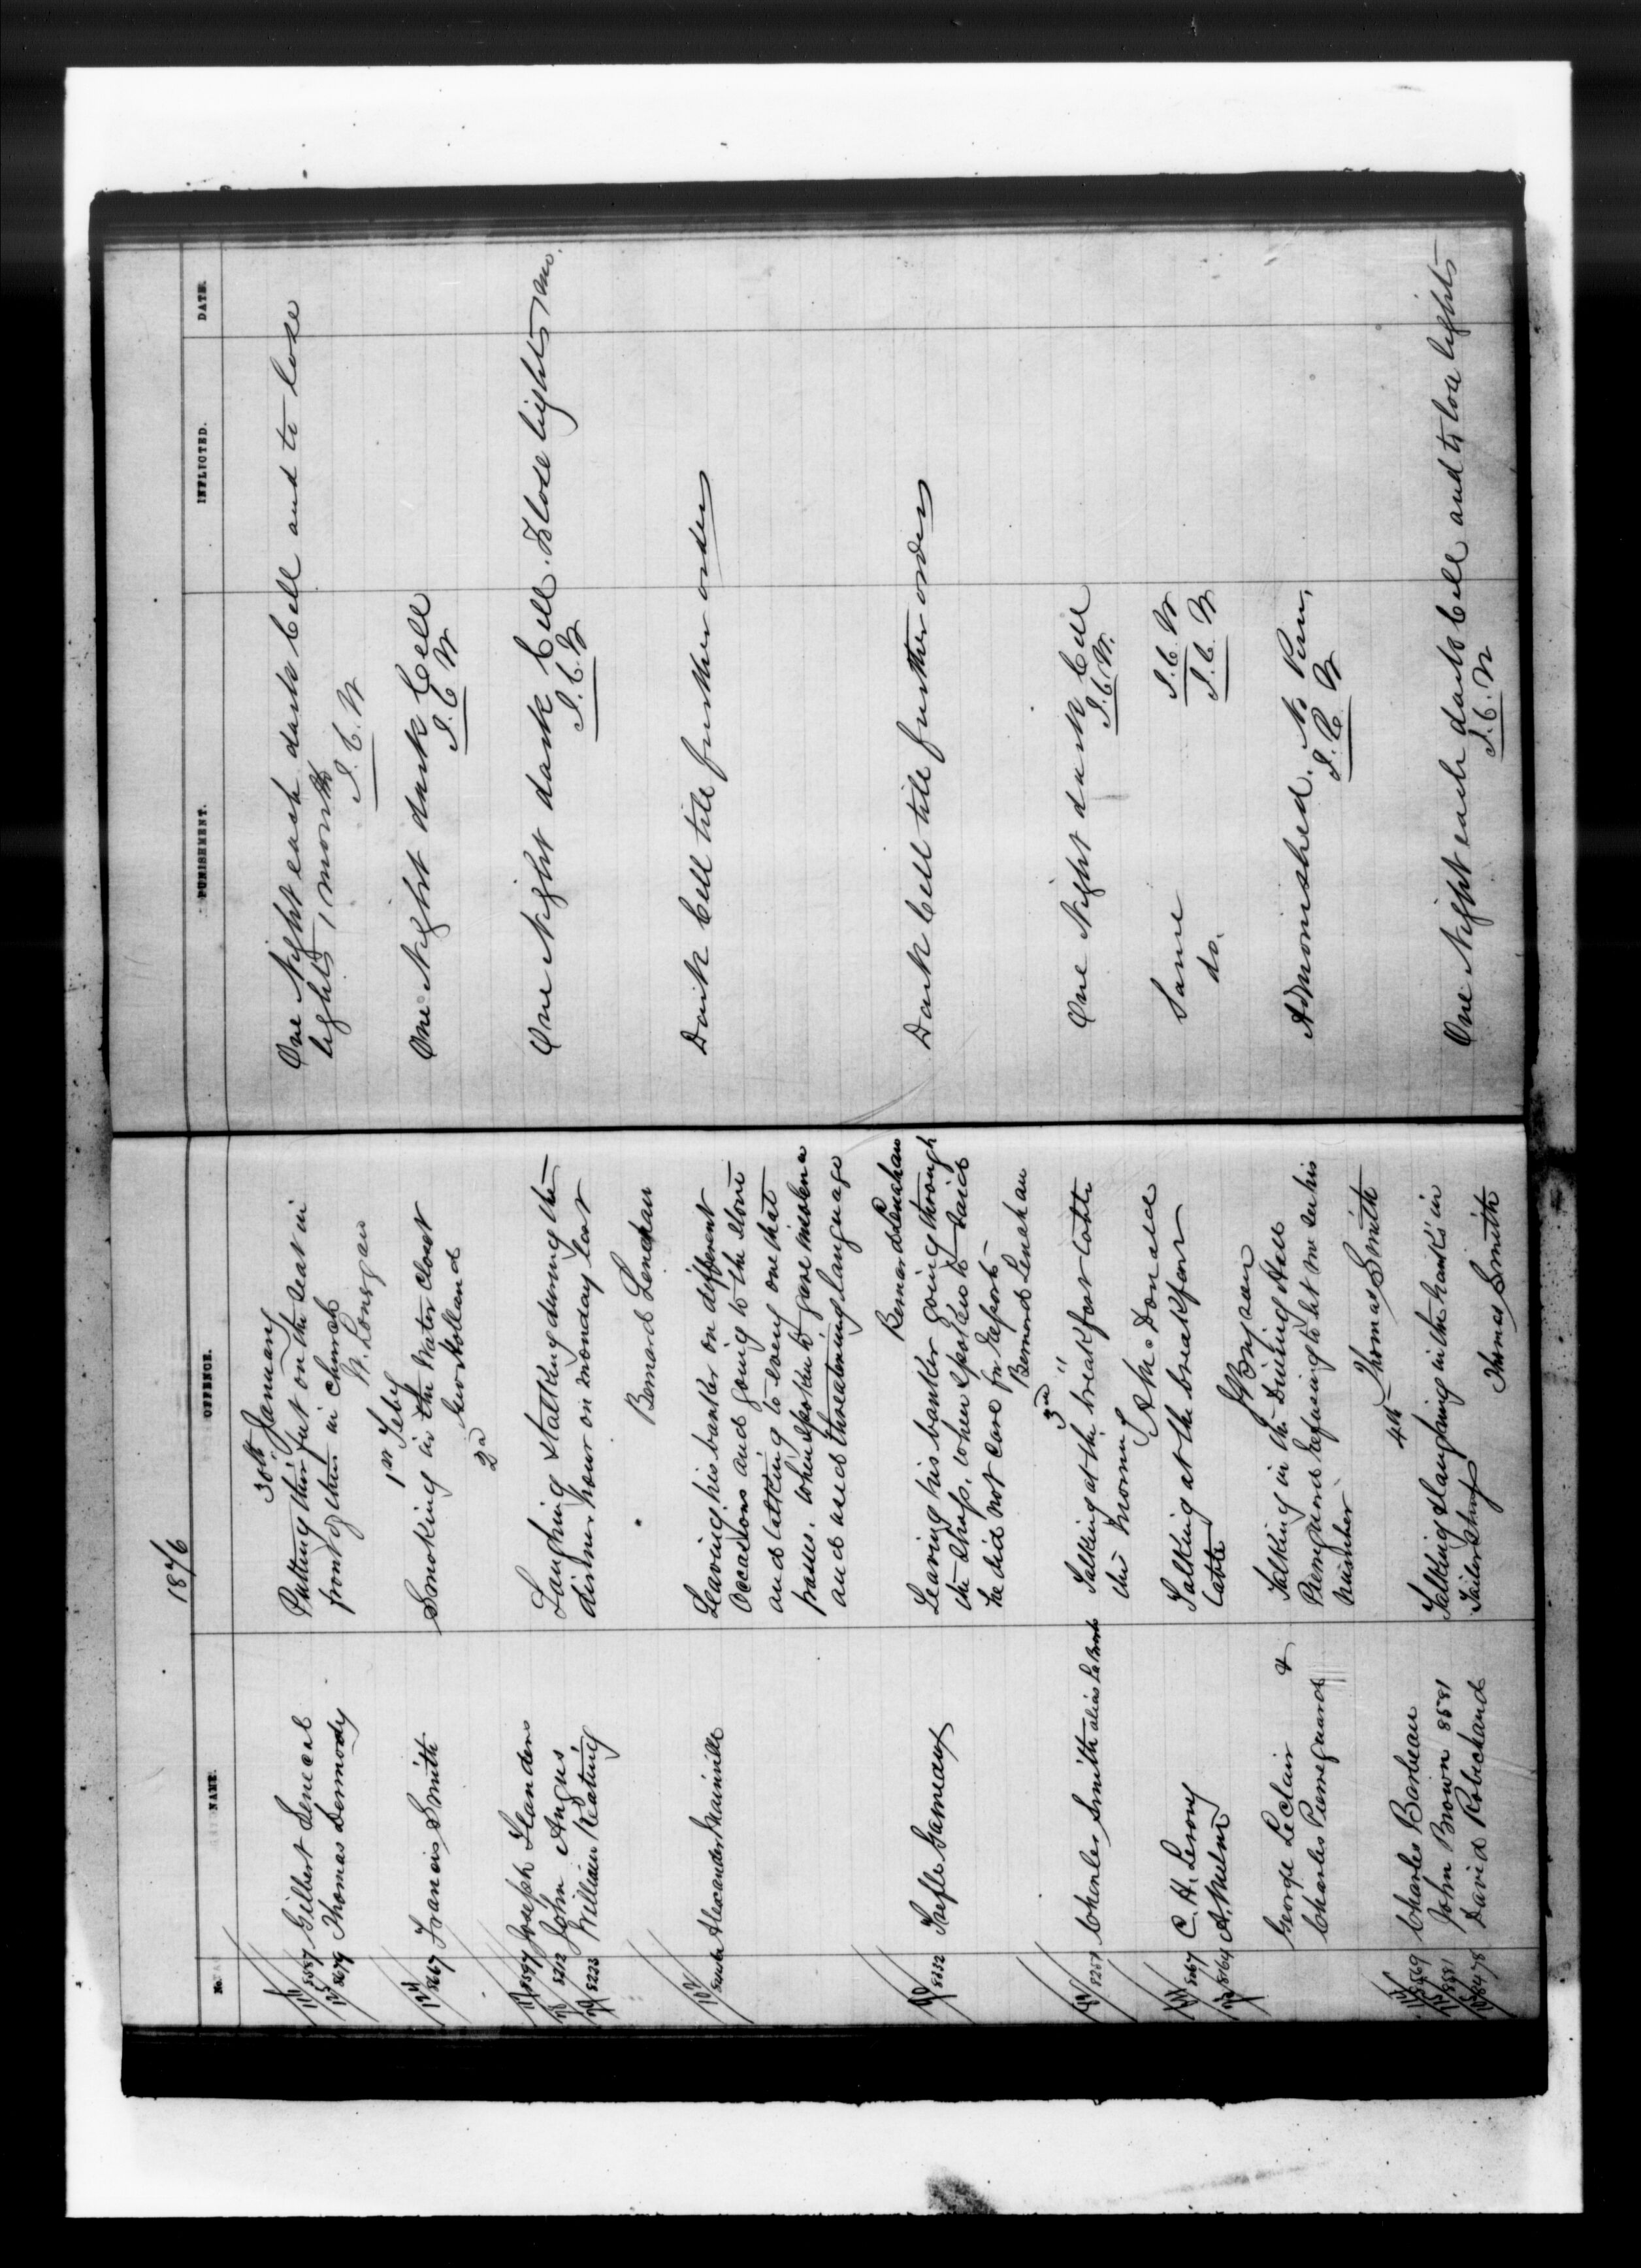 1876
No. NAME. OFFENCE. PUNISHMENT. INFLICTED. DATE.
30th January
8587 Gilbert Senecal Putting their feet on the seat in One Night each dark Cell and to lose
Thomas Dermody front of them in church lights 1 month
W. Lonergan J. C. W
1st Feby
Francis Smith Smoking in the Water Closet One Night dark Cell
Holland J. C W
2d
8597 Joseph Flanders Laughing & talking during the One Night dark Cell. & lose lights 1 mo.
8212 John Angus dinner hour on monday last J. C. W
8223 William Keating
Bernard Lenehan
Alexander Mainville Leaving his banker on different Dark Cell till further orders
Occasions and going to the stove
and talking to every one that
passes. when spoken to gave insolence
and used threatening language
Bernard Lenehan
8132 Gameaux Leaving his banker going through Dark Cell till further orders
the shops. when spoken to said
he did not care for report
Bernard Lenehan
3rd "
8257 Charles Smith alias Talking at the breakfast table One Night dark Cell
this morning J. C. W.
McDonald
C. H. Leroy Talking at the breakfast Same J. C. W
8164 A. Milne table do. J. C. W
Bryson
George LeClair & Talking in the Dining Hall Admonished. No Pun,
Charles Pierreguard Pierreguard refusing to let me see his J. C. W
number
Thomas Smith
4th
8569 Charles Barbeau Talking & laughing in the ranks in One Night each dark Cell and to lose lights
8581 John Brown 8581 Tailor Shop J. C. W
8478 David Robichaud Thomas Smith